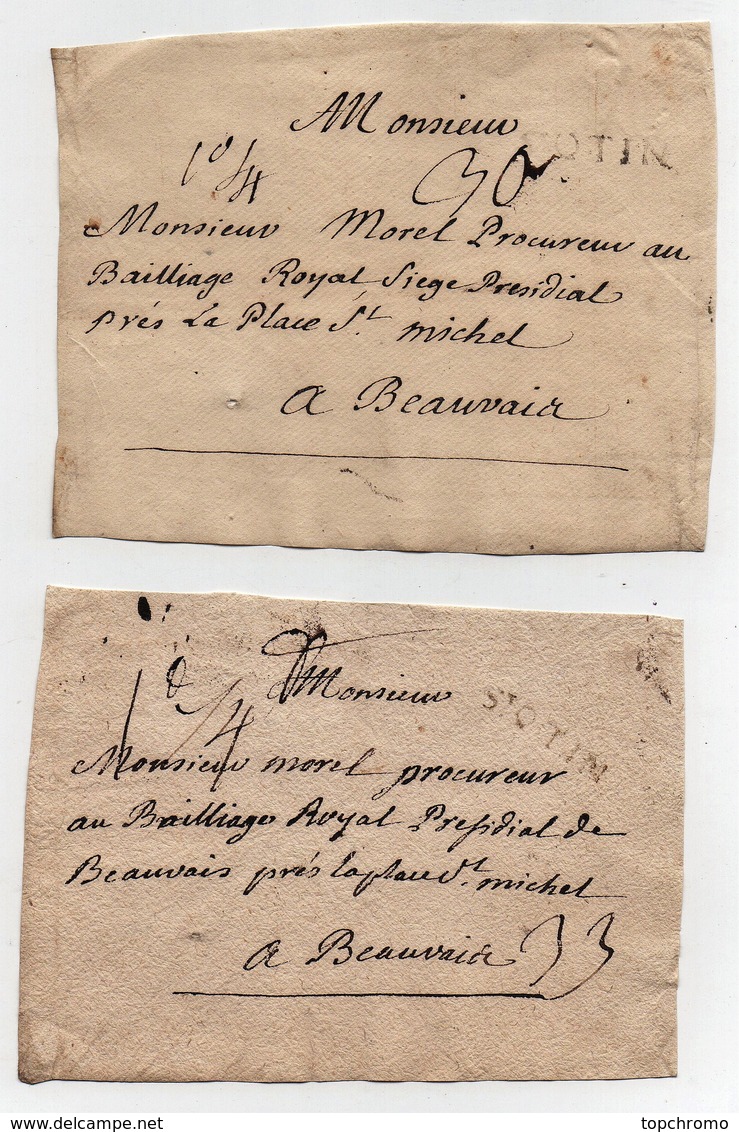 Monsieur
1 0/4
30
Monsieur Morel Procureur au
Bailliage Royal Siege Presidial
prés La Place St. michel
a Beauvais
Monsieur
1 0/4
Monsieur morel procureur
au Bailliage Royal Presidial de
Beauvais prés laplace St. michel
a Beauvais
33
delcampe.net
topchromo